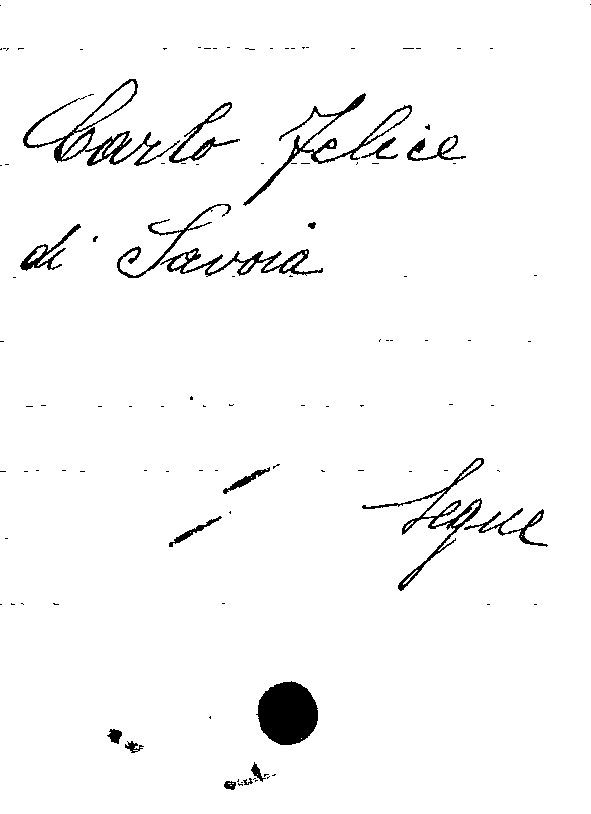 Carlo Felice
di Savoia
segue